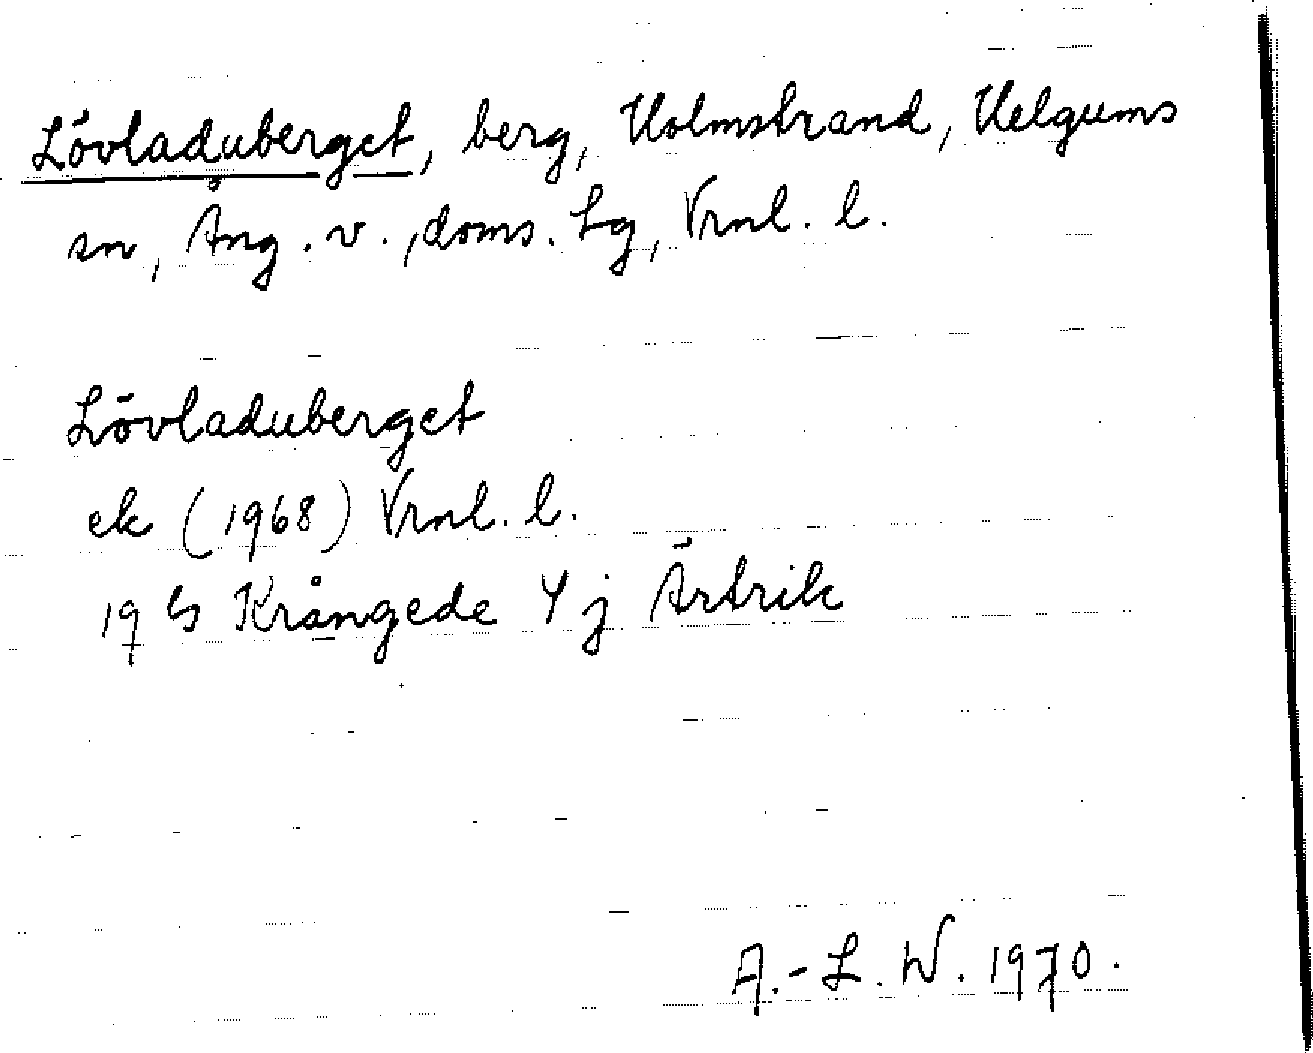 Lövladuberget, berg, Holmstrand, Helgums
sn, Ång. v., doms. hg, Vrnl. l.
Lövladuberget
ek (1968) Vrnl. l.
19 G Krångede Y j Ärtrik
A.-L. W. 1970.